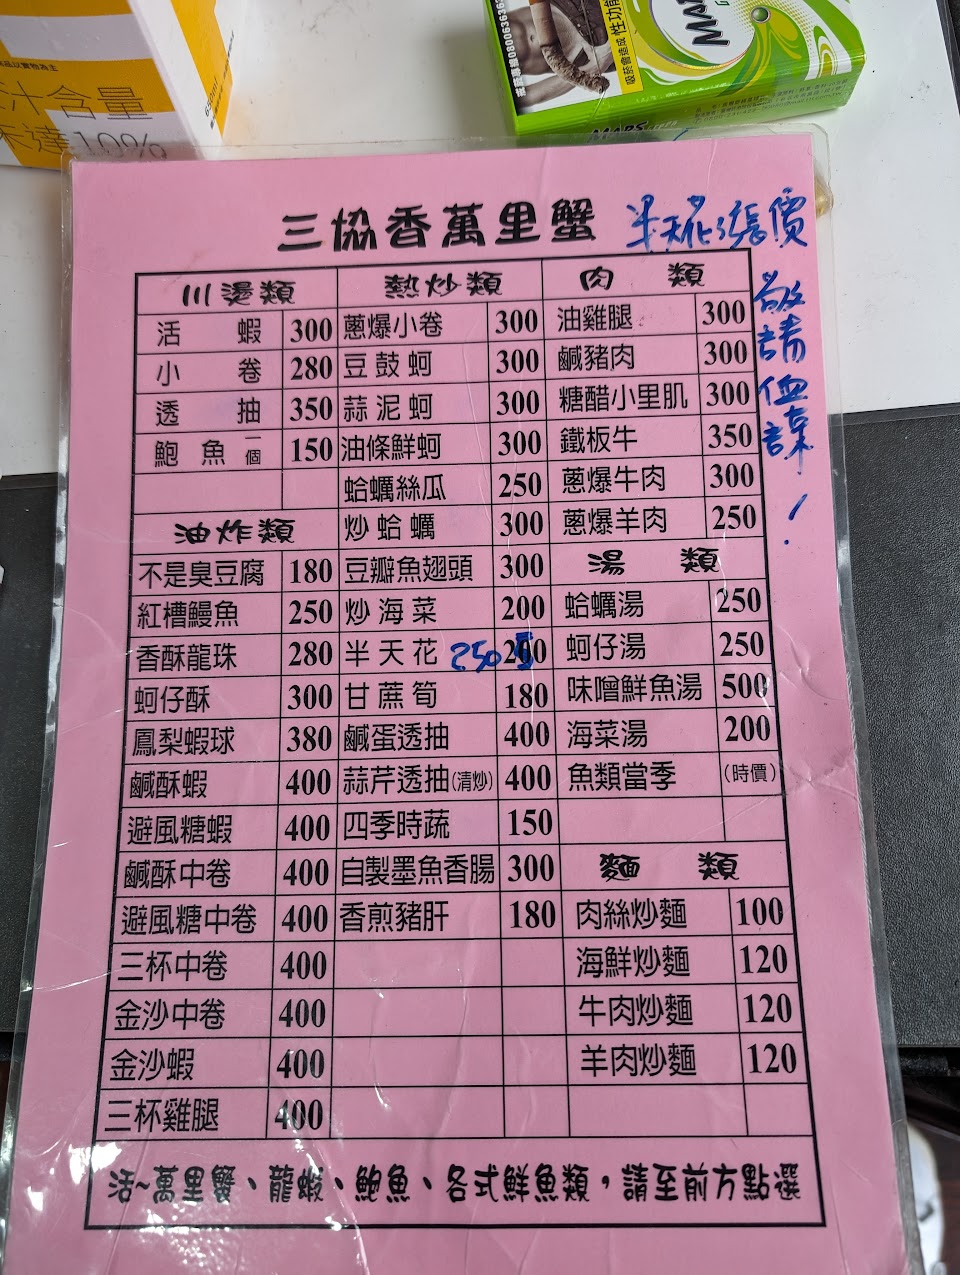 品以實物為主
汁含量
未達10%
戒菸專線0800636363
吸菸會造成 性功能
MARS
三協香萬里蟹
半天花漲價
敬請見諒!
川燙類
活蝦 300
小卷 280
透抽 350
鮑魚一個 150
油炸類
不是臭豆腐 180
紅槽鰻魚 250
香酥龍珠 280
蚵仔酥 300
鳳梨蝦球 380
鹹酥蝦 400
避風糖蝦 400
鹹酥中卷 400
避風糖中卷 400
三杯中卷 400
金沙中卷 400
金沙蝦 400
三杯雞腿 400
熱炒類
蔥爆小卷 300
豆鼓蚵 300
蒜泥蚵 300
油條鮮蚵 300
蛤蠣絲瓜 250
炒蛤蠣 300
豆瓣魚翅頭 300
炒海菜 200
半天花 250 200
甘蔗筍 180
鹹蛋透抽 400
蒜芹透抽(清炒) 400
四季時蔬 150
自製墨魚香腸 300
香煎豬肝 180
肉類
油雞腿 300
鹹豬肉 300
糖醋小里肌 300
鐵板牛 350
蔥爆牛肉 300
蔥爆羊肉 250
湯類
蛤蠣湯 250
蚵仔湯 250
味噌鮮魚湯 500
海菜湯 200
魚類當季 (時價)
麵類
肉絲炒麵 100
海鮮炒麵 120
牛肉炒麵 120
羊肉炒麵 120
活~萬里蟹、龍蝦、鮑魚、各式鮮魚類,請至前方點選